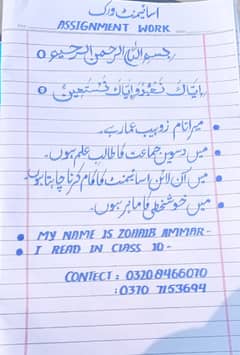 اسائنمنٹ ورک
ASSIGNMENT WORK
بسم اللہ الرحمن الرحیم
اِیَّاکَ نَعْبُدُ وَاِیَّاکَ نَسْتَعِیْنُ
میرا نام زوہیب عمار ہے۔
میں دسویں جماعت کا طالب علم ہوں۔
میں آن لائن اسائنمنٹ کا کام کرنا چاہتا ہوں۔
میں خوشخطی کا ماہر ہوں۔
MY NAME IS ZOHAIB AMMAR-
I READ IN CLASS 10-
CONTECT: 0320 8466070
:0370 7153694